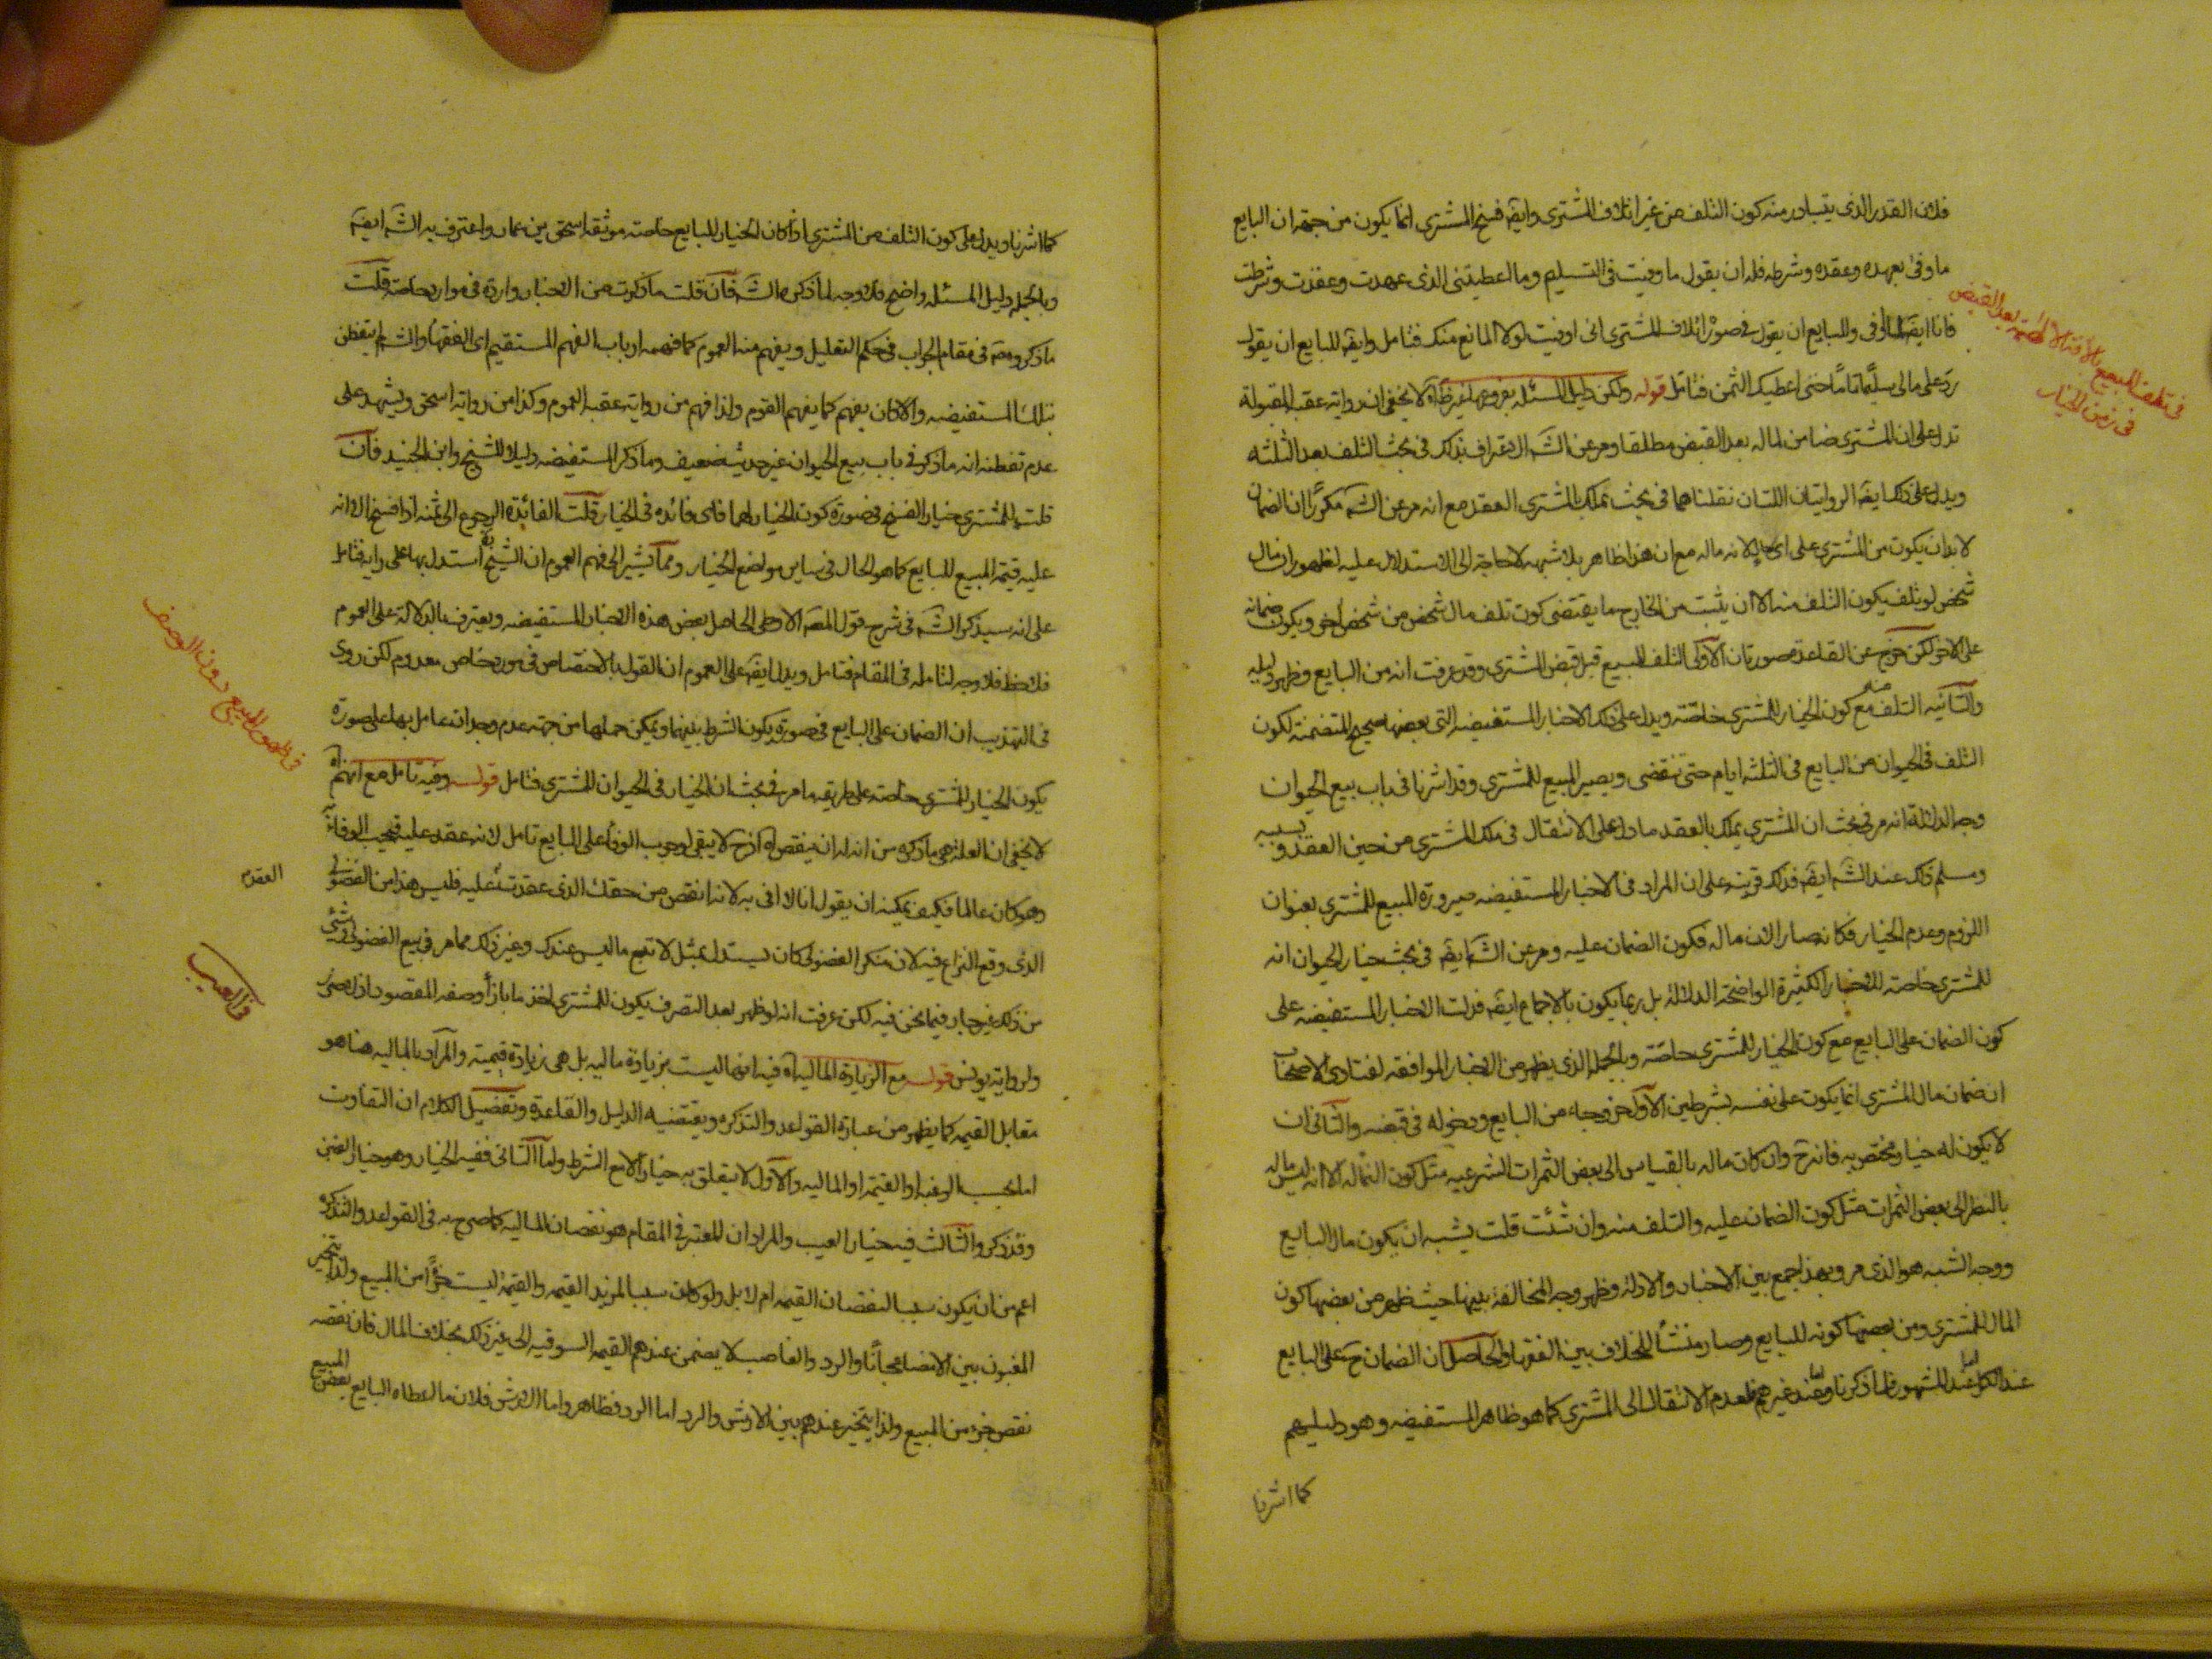 فلان القدر الذى يتبادر منه كون التلف من غير اتلاف المشترى وايضَ فسخ المشترى انما يكون من جهة ان البايع
ما وفى بعهده وعقده وشرطه فله ان يقول ما وفيت فى التسليم وما اعطيتنى الذى عهدت وعقدت وشرطت
فانا ايضَ لا اوفى وللبايع ان يقول فى صورة اتلاف المشترى انى اوفيت لولا المانع منك فتامل وايضَ للبايع ان يقول
ردّ علىّ مالى سليمًا تامًا حتى اعطيك الثمن فتامل قوله ولكن دليل المسئلة بفروعها غير ظَ آه لا يخفى ان رواية عقبة المقبولة
تدل على ان المشترى ضامن لماله بعد القبض مطلقا ومر عن الشَ الاعتراف بذلك فى بحث التلف بعد الثلثة
ويدل على ذلك ايضَ الروايتان اللتان نقلناهما فى بحث تملك المشترى العقد مع انه مر عن الشَ مكررًا ان الضمان
لابد ان يكون من المشترى على اى حال لانه ماله مع ان هذا ظاهر بلا شبهه لا حاجة الى الاستدلال عليه لظهور ان مال
شخص لو تلف يكون التلف منه الا ان يثبت من الخارج ما يقتضى كون تلف مال شخص من شخص آخر ويكون ضمانه
على الاخر لكن خرج عن القاعدة صورتان الاولى التلف المبيع قبل قبض المشترى وقد عرفت انه من البايع وظهر دليله
والثانيه التلف منه مع كون الخيار للمشترى خاصّة ويدل على ذلك الاخبار المستفيضه التى بعضها صحيح المتضمنة لكون
التلف فى الحيوان من البايع فى الثلثة ايام حتى تنقضى ويصير المبيع للمشترى وقد اشرنا فى باب بيع الحيوان
وجه الدلالة انه مر فى بحث ان المشترى يملك بالعقد ما دل على الانتقال فى ملك المشترى من حين العقد وبسببه
ومسلم ذلك عند الشَ ايضَ فذلك قرينة على ان المراد فى الاخبار المستفيضه صيرورة المبيع للمشترى بعنوان
اللزوم وعدم الخيار فكانه صار الان ماله فكون الضمان عليه ومر عن الشَ ايضَ فى بحث خيار الحيوان انه
للمشترى خاصّة للاخبار الكثيرة الواضحة الدلالة بل ربما يكون بالاجماع ايضَ فدلت الاخبار المستفيضه على
كون الضمان على البايع مع كون الخيار للمشترى خاصّة وبالجملة الذى يظهر من الاخبار الموافقة لفتاوى الاصحاب
ان ضمان مال المشترى انما يكون على نفسه بشرطين الاول خروجه من البايع ودخوله فى قبضه والثانى ان
لا يكون له خيار مختص به فانه حَ وان كان ماله بالقياس الى بعض الثمرات الشرعيه مثل كون النما له الا انه ليس ماله
بالنظر الى بعض الثمرات مثل كون الضمان عليه والتلف منه وان شئت قلت يشبه ان يكون مال البايع
ووجه الشبه هو الذى مر وبهذا جمع بين الاخبار والادلة وظهر وجه المخالفة بينها حيث ظهر من بعضها كون
المال للمشترى ومن بعضها كونه للبايع وصار منشأ للخلاف بين الفقها والحاصل ان الضمان حَ على البايع
عند الكل اما عند المشهور فلما ذكرنا واما عند غيرهم فلعدم الانتقال الى المشترى كما هو ظاهر المستفيضه وهو دليلهم
كما اشرنا
فى تلف المبيع بالافة الالهية بعد القبض
فى زمن الخيار
كما اشرنا ويدل على كون التلف من المشترى اذا كان الخيار للبايع خاصّة موثقة اسحق بن عمار واعترف به الشَ ايضَ
وبالجملة دليل المسئله واضح فلا وجه لما ذكره الشَ فان قلت ما ذكرت من الاخبار واردة فى موارد خاصة قلت
ما ذكروه فى مقام الجواب فى حكم التعليل ويفهم منه العموم كما فهمه ارباب الفهم المستقيم اى الفقها والشَ لم يتفطن
بتلك المستفيضه والا كان يفهم كما يفهم القوم ولذا فهم من رواية عقبة العموم وكذا من رواية اسحق ويشهد على
عدم تفطنه انه ما ذكر فى باب بيع الحيوان غير حديث ضعيف وما ذكر المستفيضه دليلا للشيخ وابن الجنيد فان
قلت للمشترى خيار الفسخ فى صورة كون الخيار لهما فاى فائده فى الخيار قلت الفائدة الرجوع الى ثمنه اذا فسخ الا انه
عليه قيمة المبيع للبايع كما هو الحال فى ساير مواضع الخيار ومما يشير الى فهم العموم ان الشيخ ره استدل بها على رايه فتامل
على انه سيذكر الشَ فى شرح قول المصَ الاوطى الحامل بعض هذه الاخبار المستفيضه ويعترف بالدلالة على العموم
فلاحظ فلا وجه لتامله فى المقام فتامل ويدل ايضَ على العموم ان القول بالاختصاص فى مورد خاص معدوم لكن روى
فى التهذيب ان الضمان على البايع فى صورة يكون الشرط بينهما ويمكن حملها من جهة عدم وجدان عامل بها على صورة
يكون الخيار للمشترى خاصة على طريقة ما مر فى بحث ان الخيار فى الحيوان للمشترى فتامل قوله وفيه تامل مع انهم آه
لا يخفى ان العلة هى ما ذكره من انه له ان ينقص آه اذ حَ لا يبقى لوجوب الوفا على البايع تامل لانه عقد عليه فيجب الوفاء
وهو كان عالما فكيف يمكنه ان يقول انا لا افى به لانه انقص من حقك الذى عقدت عليه فليس هذا من الفضولى
الذى وقع النزاع فيه لان منكر الفضولى كان يستدل بمثل لا تبع ما ليس عندك وغير ذلك مما مر فى بيع الفضولى وشئ
من ذلك غير جار فيما نحن فيه لكن عرفت انه لو ظهر بعد التصرف يكون للمشترى اخذ ما بازاء وصفه المقصود اذ لا ضرر
ولرواية يونس قوله مع الزيادة المالية آه فيه انها ليست بزيادة ماليه بل هى زيادة قيمية والمراد بالماليه هنا هو
مقابل القيمة كما يظهر من عبارة القواعد والتذكره ويقتضيه الدليل والقاعدة وتفصيل الكلام ان التفاوت
اما بحسب الرغبة او القيمة او الماليه والاول لا يتعلق به خيار الا مع الشرط واما الثانى ففيه الخيار وهو خيار الغبن
وقد ذكر والثالث فيه خيار العيب والمراد ان المعتبر فى المقام هو نقصان المالية كما صرح به فى القواعد والتذكره
اعم من ان يكون سببا لنقصان القيمة ام لا بل ولو كان سببا لمزيد القيمه والقيمة ليست جزءًا من المبيع ولذا يتخير
المغبون بين الامضا مجانًا والرد والغاصب لا يضمن عندهم القيمة السوقيه الى غير ذلك بخلاف المال فان نقصه
نقص جزء من المبيع ولذا يتخير عندهم بين الارش والرد اما الرد فظاهر واما الارش فلان ما اعطاه البايع بعض المبيع
فى ظهور المبيع بدون الوصف
العقد
فى العيب